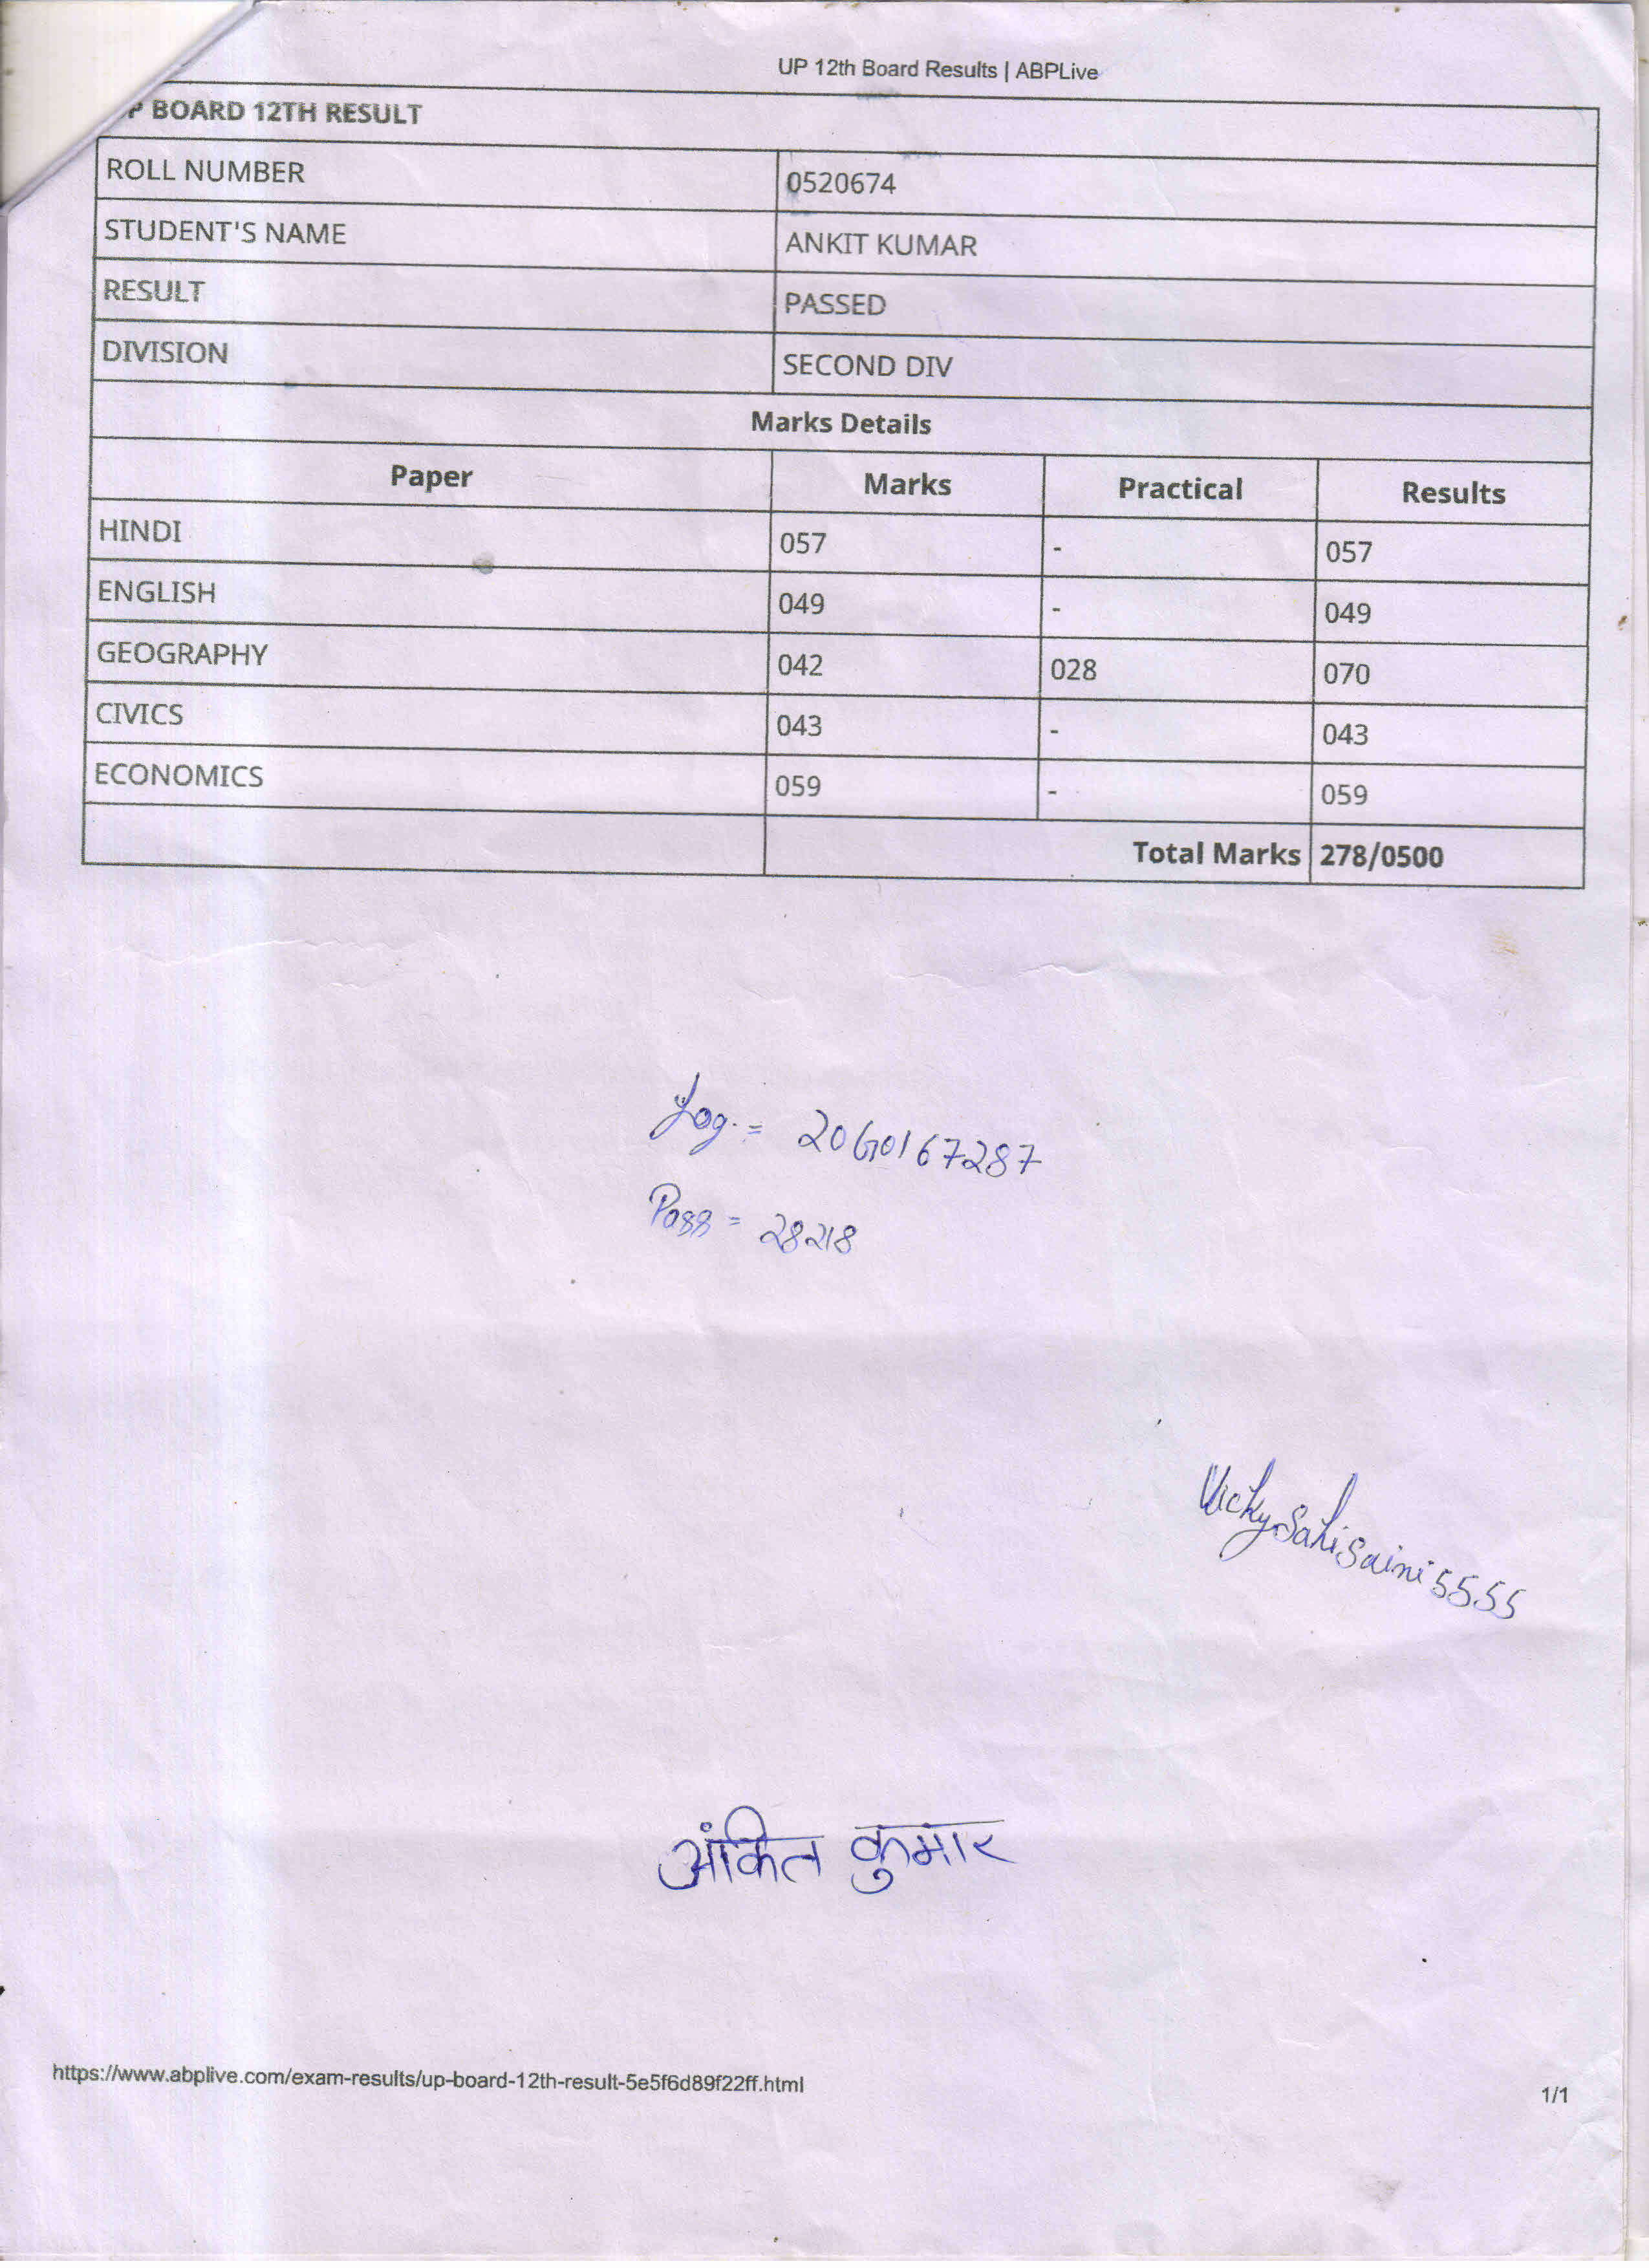 UP 12th Board Results | ABPLive
P BOARD 12TH RESULT
ROLL NUMBER 0520674
STUDENT'S NAME ANKIT KUMAR
RESULT PASSED
DIVISION SECOND DIV
Marks Details
Paper Marks Practical Results
HINDI 057 - 057
ENGLISH 049 - 049
GEOGRAPHY 042 028 070
CIVICS 043 - 043
ECONOMICS 059 - 059
Total Marks 278/0500
Log. = 20G0167287
Pass = 28218
VickySahiSaini5555
अंकित कुमार
https://www.abplive.com/exam-results/up-board-12th-result-5e5f6d89f22ff.html
1/1